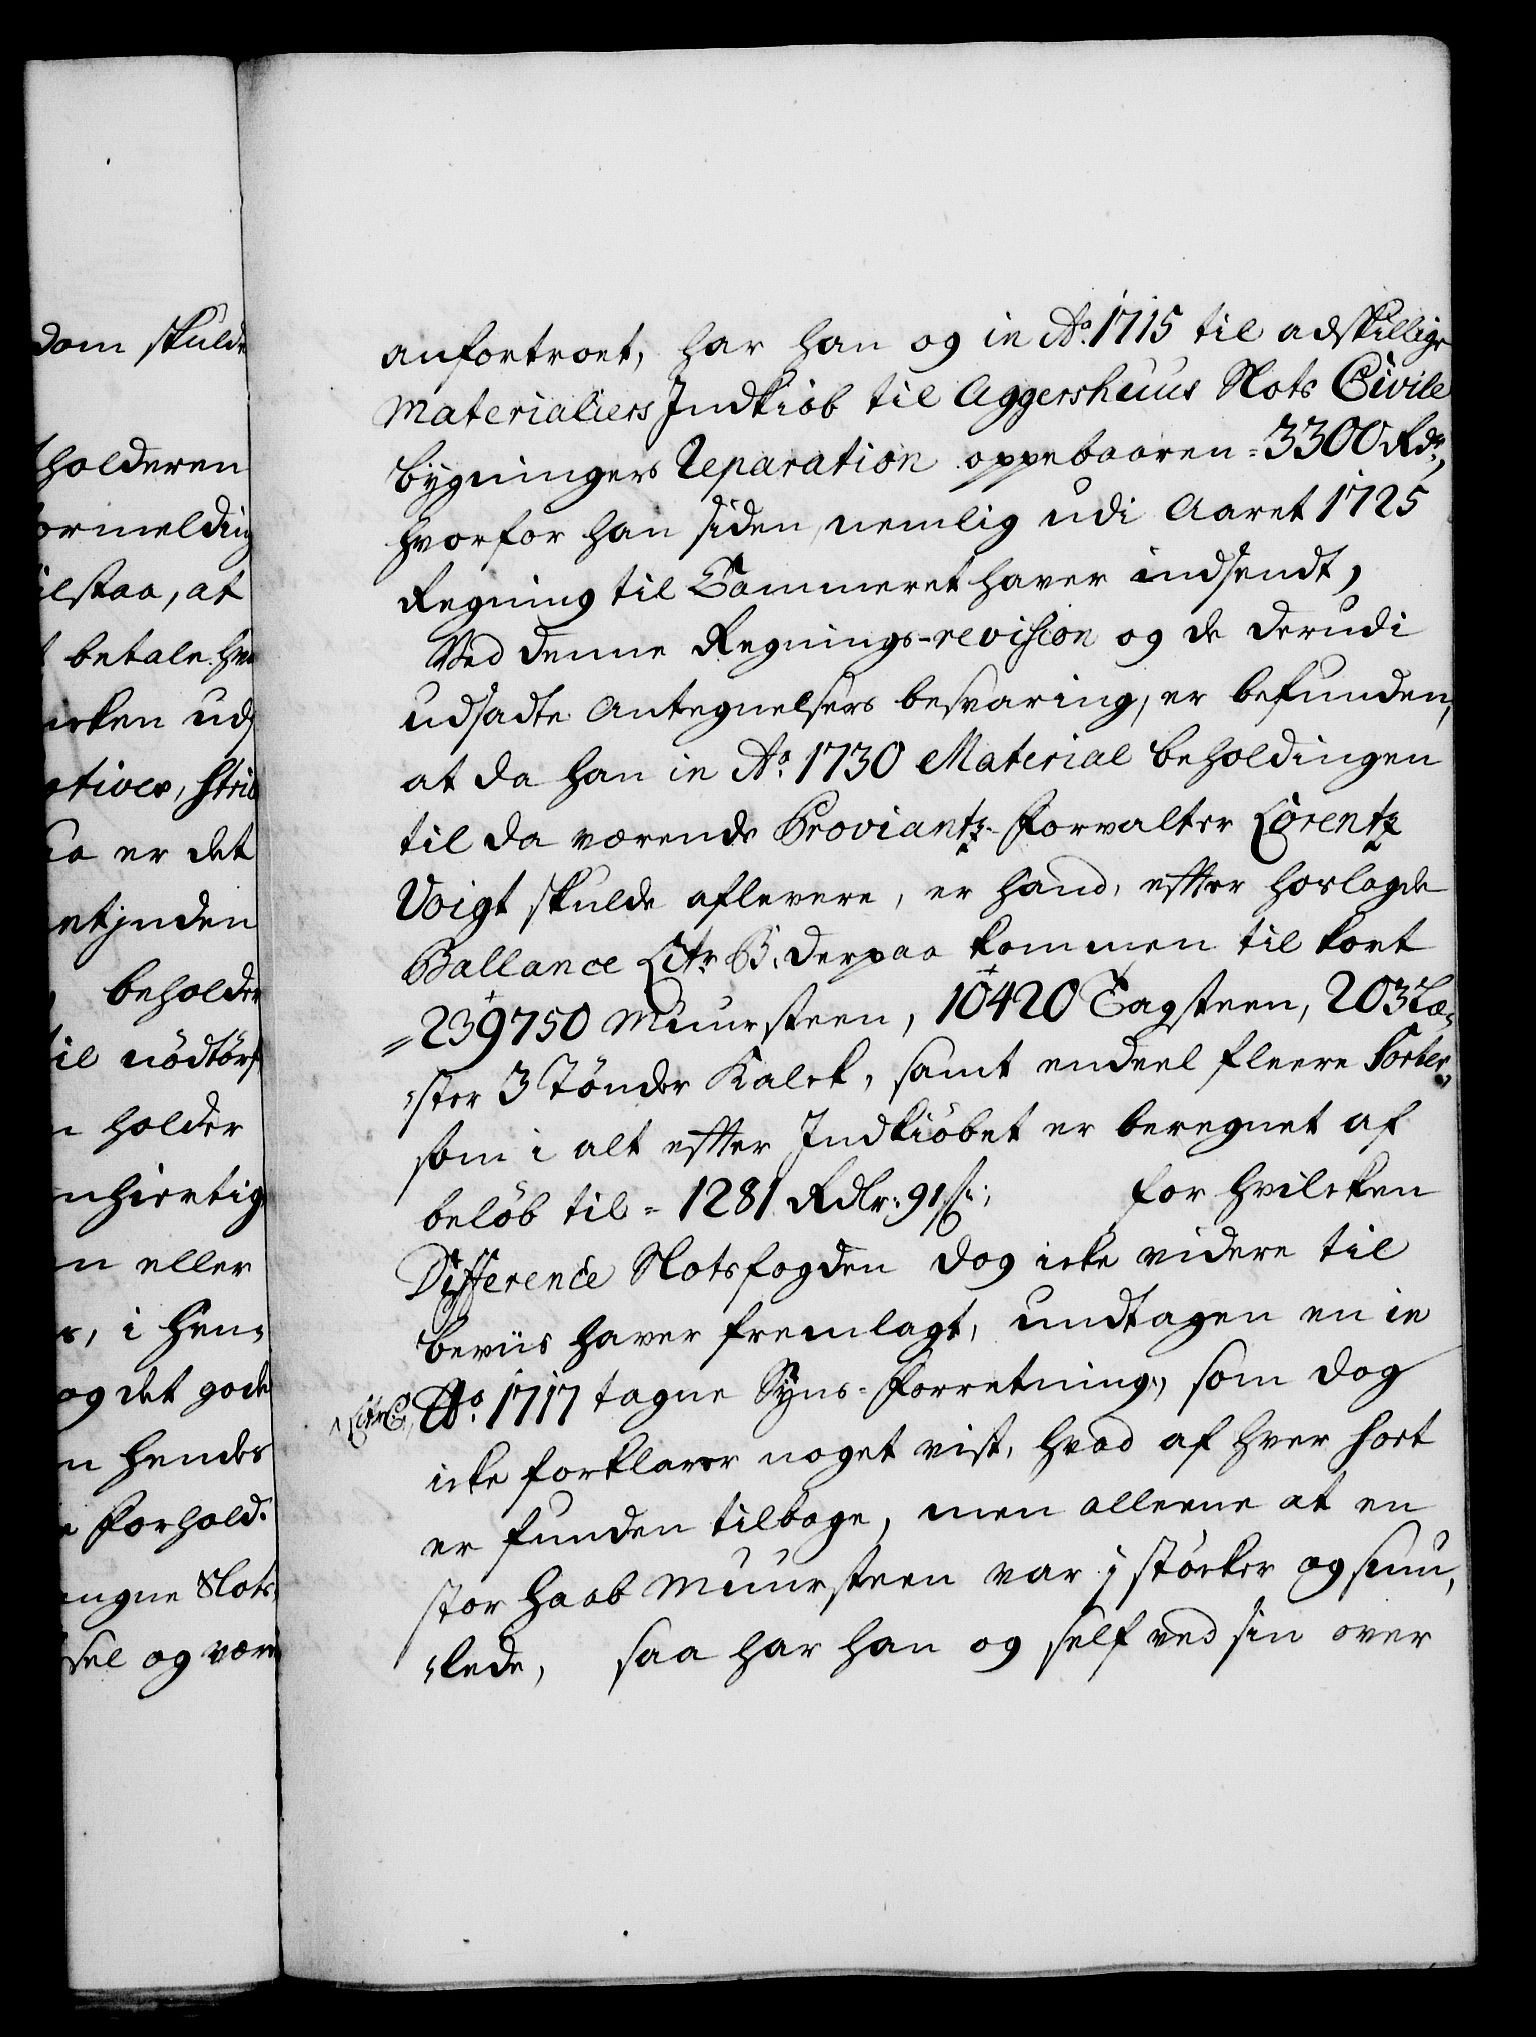 dom skulde
holderen
ormelding
ilstaa, at
betale hva
rken ud
otiver, Stri
aa er det
ntjnden
beholder
til nödtörf
holder
nhiertig
n eller
r, i Hen-
og det gode
n hendes
e Forhold.
ngne Slots,
sel og være
anfortroet, har han og in Ao. 1715 til adskillige
Materialiers Indkiöb til Aggershuus Slots Civile
bygningers Reparation oppebaaren = 3300 Rdr,
hvorfor han siden, nemlig udi Aaret 1725
Regning til Cammeret haver indsendt,
Ved denne Regnings-revision og de derudi
udsadte Antegnelsers besvaring, er befunden,
at da han in Ao. 1730 Material beholdingen
til da værende Proviantz-Forvalter Lorentz
Voigt skulde aflevere, er hand, efter hoslagde
Ballance Litr B. derpaa kommen til kort
=239750 Muursteen, 10420 Tagsteen, 203 Læ-
-ster 3 Tönder Kalck, samt endeel fleere Sorter,
som i alt efter Indkiöbet er beregnet af
belöb til = 1281 Rdlr: 91 s:, for hvilcken
Difference Slotsfogden dog icke videre til
beviis haver fremlagt, undtagen en in
^Litr C, Ao. 1717 tagne Syns-Forretning, som dog
icke forklarer noget vist, hvad af hver sort
er funden tilbage, men alleene at en
stor Haab Muursteen var i stöcker og smu,
-lede, saa har han og self ved sin over